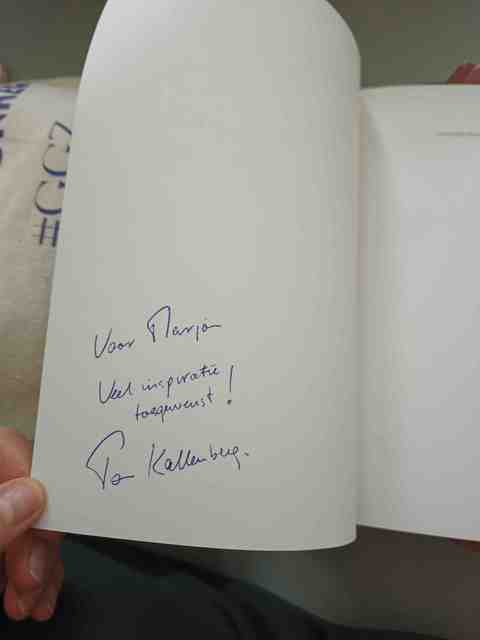 #GGZ
Voor Marjan
Veel inspiratie
toegewenst!
Ton Kallenberg.